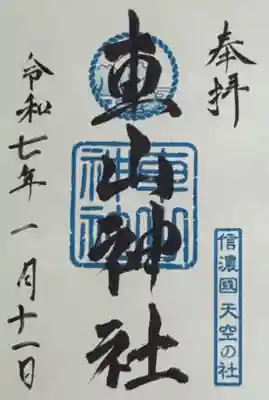 奉拝
信濃國 天空の社
車山神社
車山神社
令和七年一月十一日